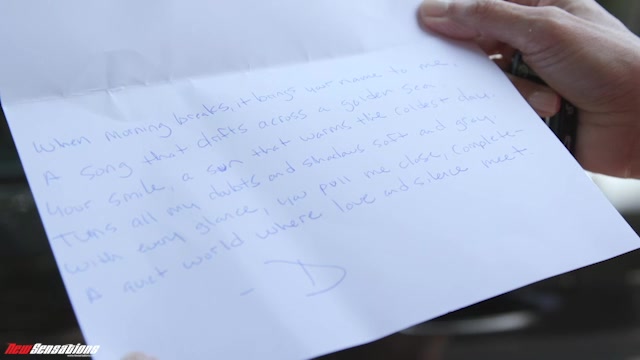 When Morning breaks, it brings your name to me,
A song that drifts across a golden sea.
Your smile, a sun that warms the coldest day.
Turns all my doubts and shadows soft and gray.
With every glance, you pull me close, complete-
A quiet world where love and silence meet.
- D
New Sensations